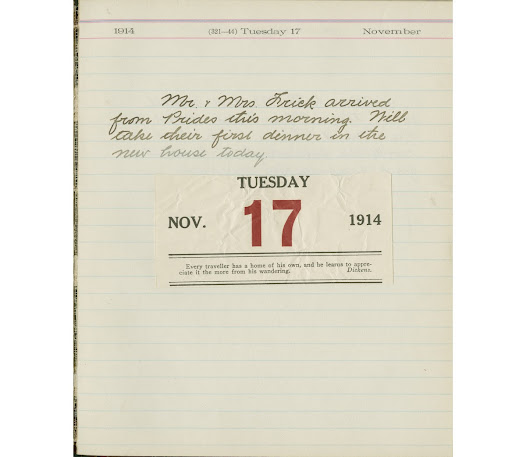 1914 (321—44) Tuesday 17 November
Mr. & Mrs. Frick arrived
from Prides this morning. Will
take their first dinner in the
new house today.
TUESDAY
NOV. 17 1914
Every traveller has a home of his own, and he learns to appre-
ciate it the more from his wandering. Dickens.